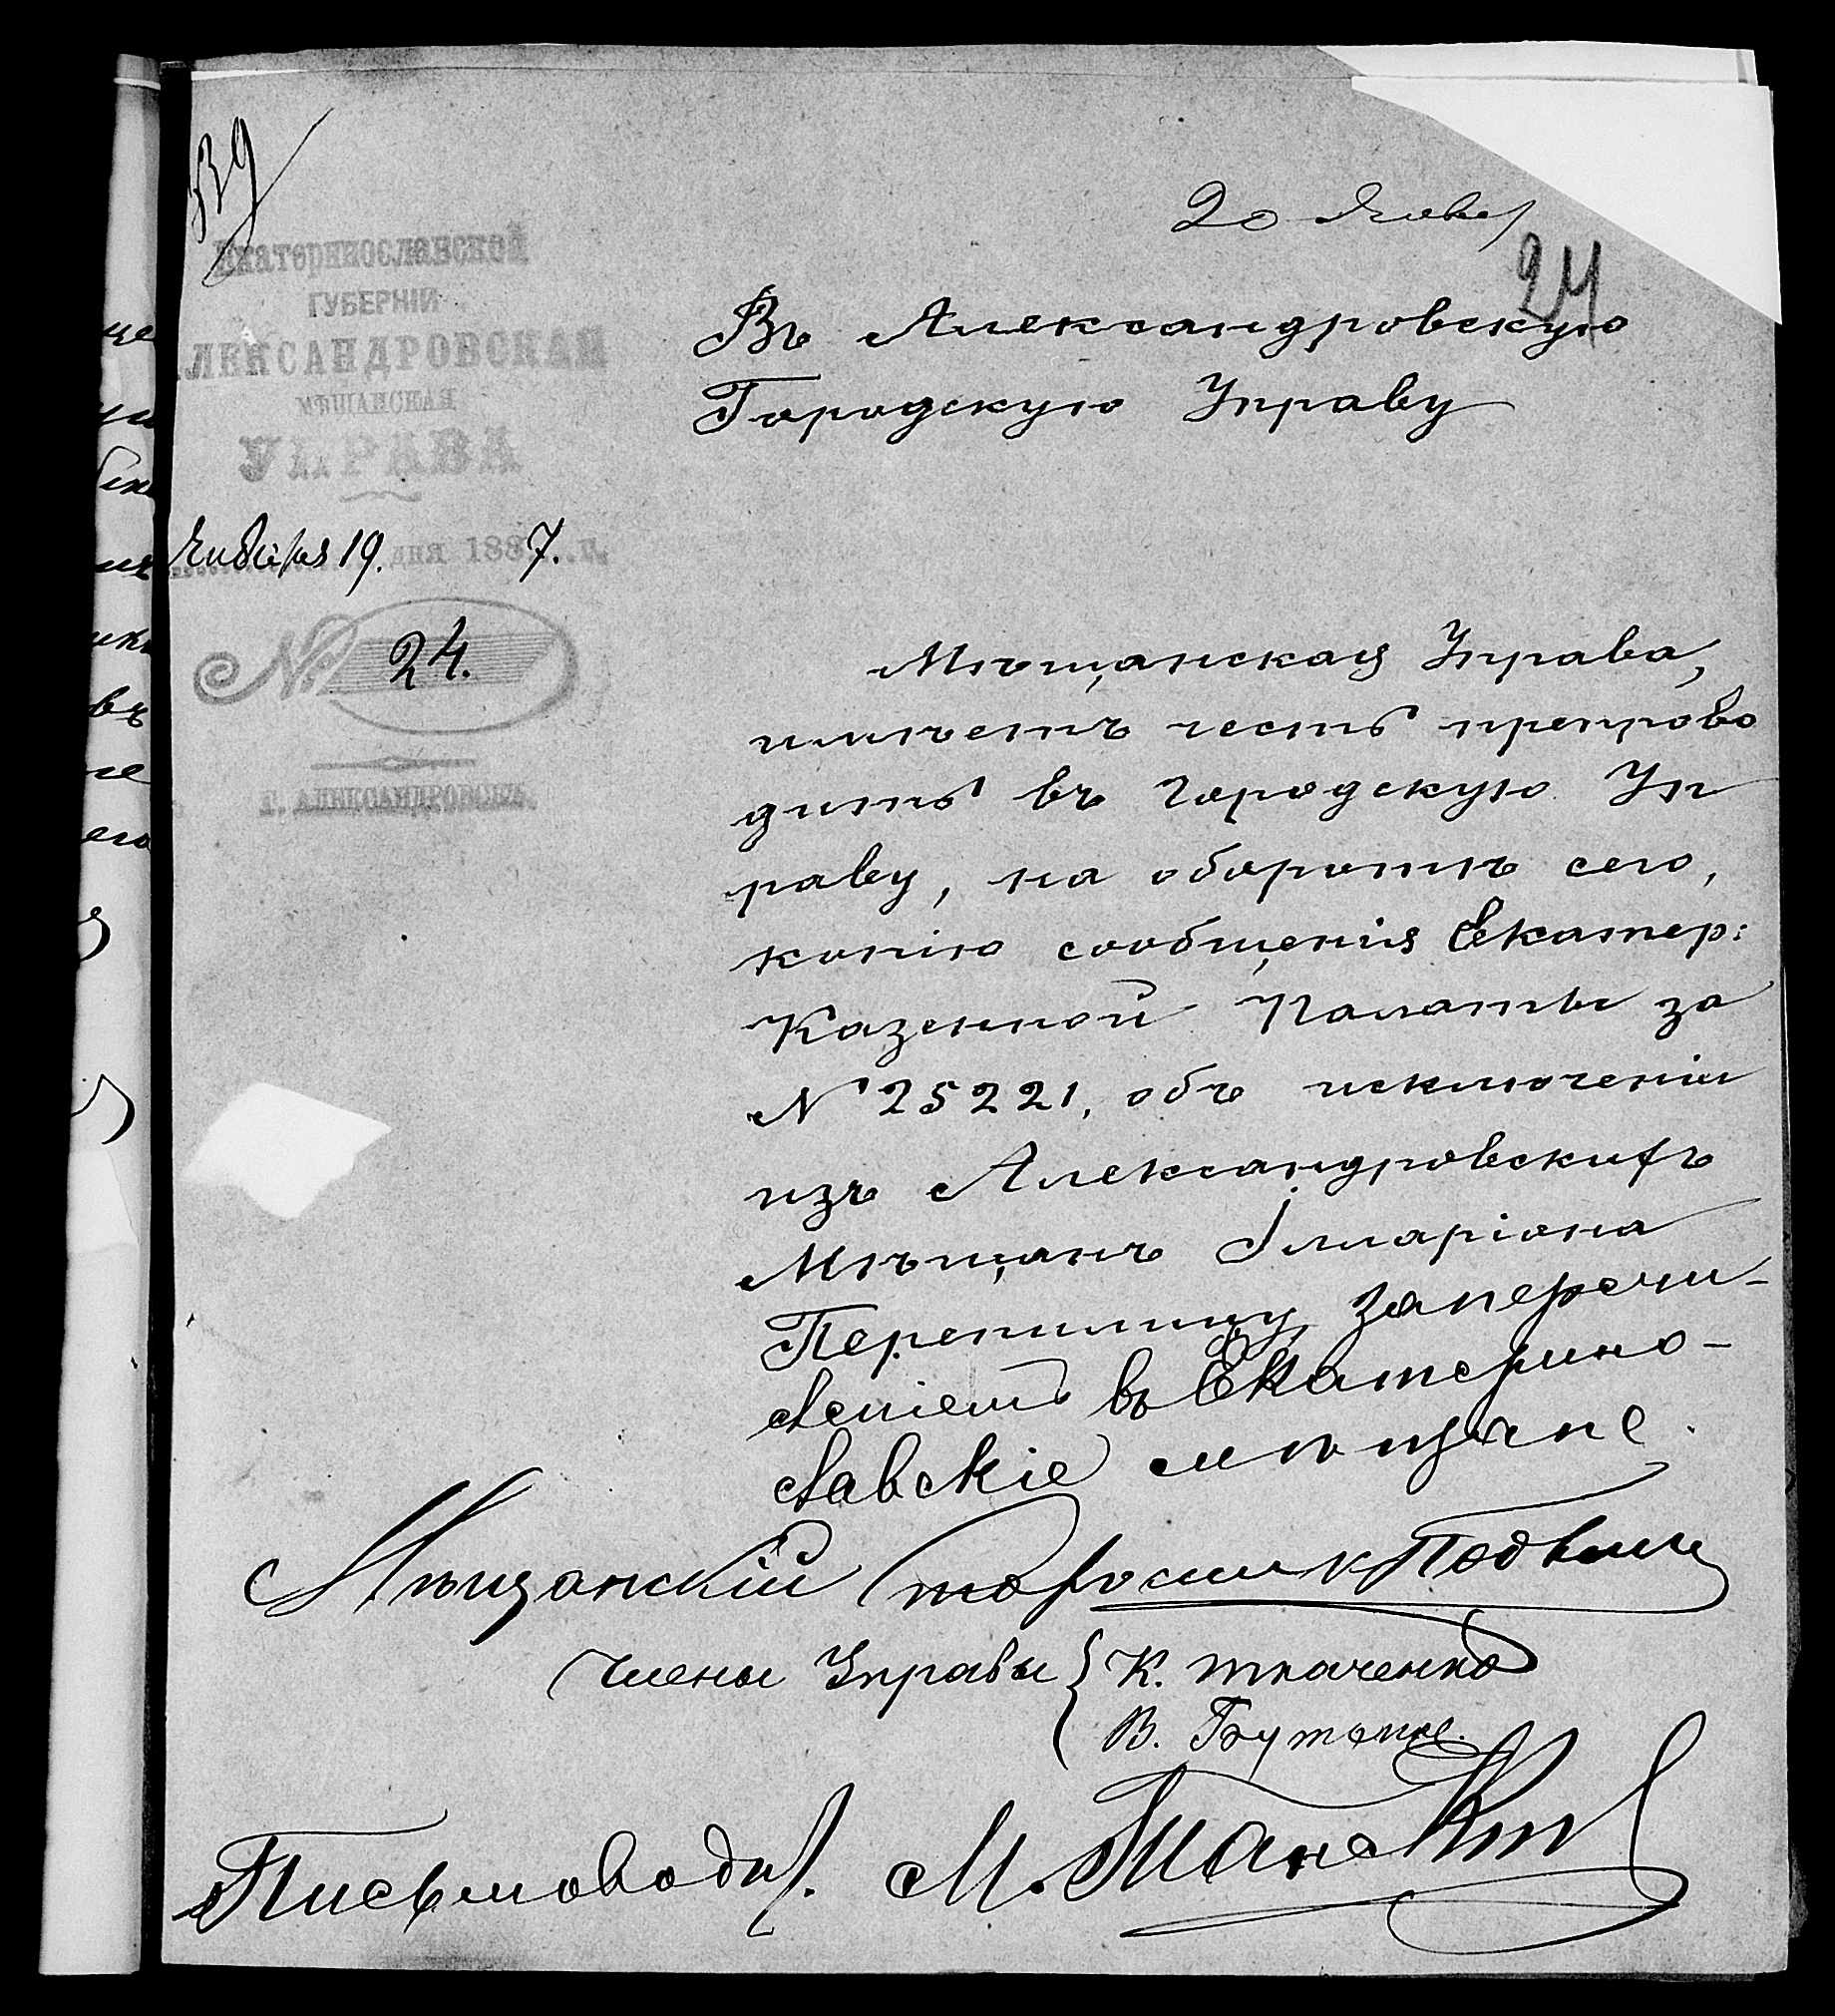 339
20 Январ
24
Екатеринославской
ГУБЕРНІИ
АЛЕКСАНДРОВСКАЯ
МѢЩАНСКАЯ
УПРАВА
Января 19. дня 1887. г.
№ 24.
Г. АЛЕКСАНДРОВСКЪ.
Въ Александровскую
Городскую Управу
Мѣщанская Управа,
имѣетъ честь препрово
дить въ Городскую Уп
раву, на оборотѣ сего,
копію сообщенія Екатер:
Казенной Палаты за
№ 25221, объ исключеніи
изъ Александровскихъ
Мѣщанъ Илларіона
Перепилицу, заперечи-
сленіемъ въ Екатерино-
славскіе мѣщане.
Мѣщанскій Староста
Члены Управы { К. Ткаченко
В. Бутенко.
Письмоводит. М.